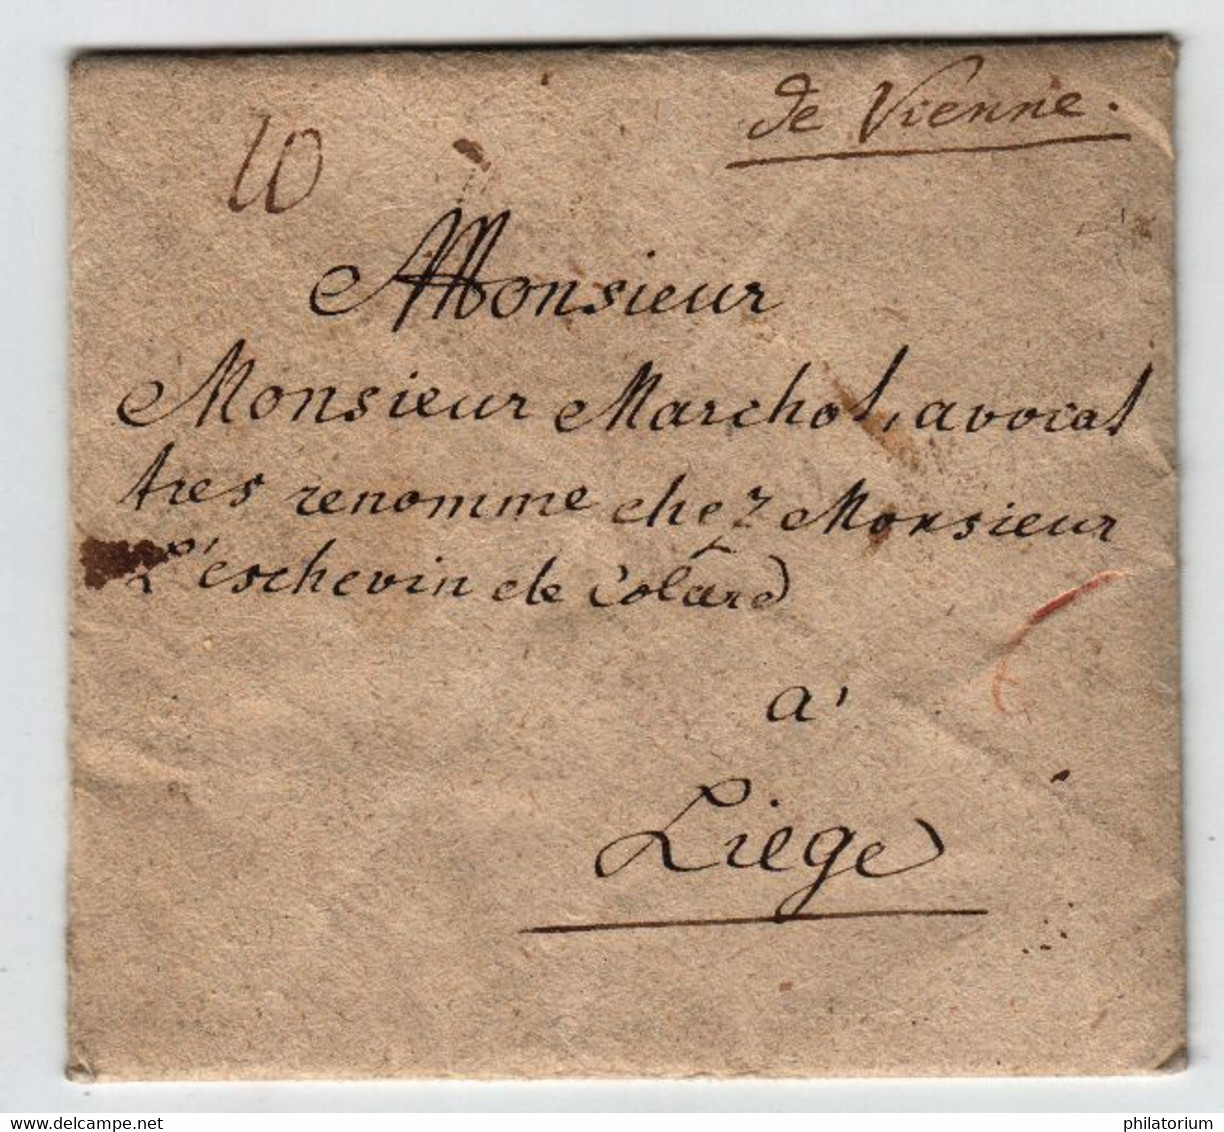 de Vienne.
10
Monsieur
Monsieur Marchot, avocat
tres renomme chez Monsieur
L'eschevin de Colard
a'
Liege
delcampe.net
philatorium